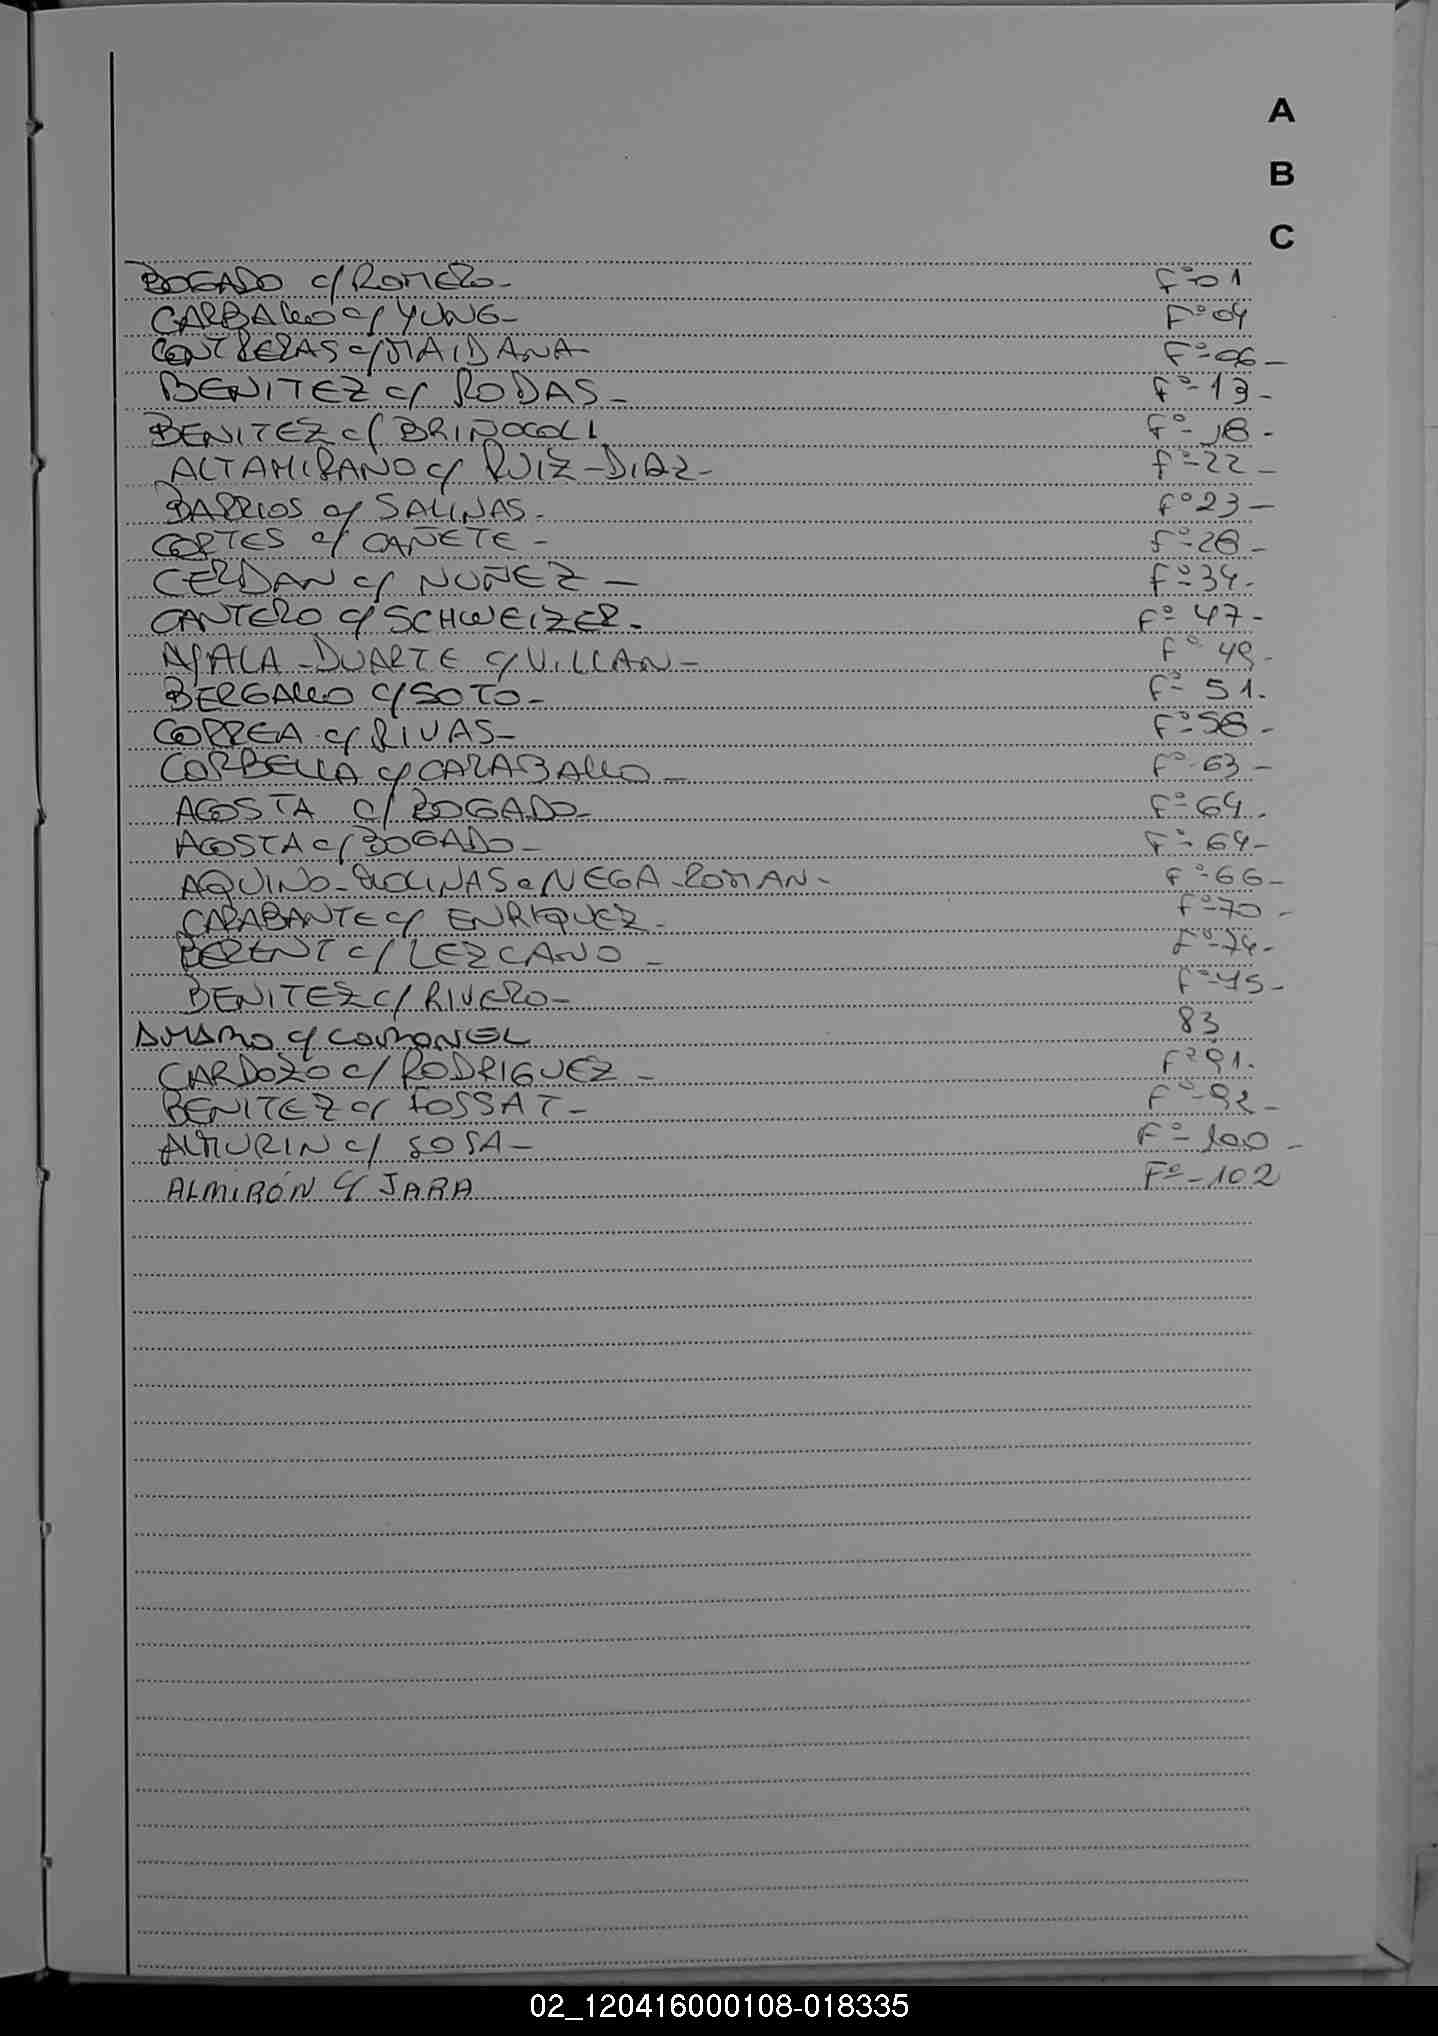 A
B
C
BOGADO c/ ROMERO - Fº 01
CARBALLO c/ YUNG - Fº 04
CONTRERAS c/ MAIDANA - Fº 06 -
BENITEZ c/ RODAS - Fº 13 -
BENITEZ c/ BRIÑOCOLI Fº 18 -
ALTAMIRANO c/ RUIZ-DIAZ - Fº 22 -
BARRIOS c/ SALINAS - Fº 23 -
CORTES c/ CAÑETE - Fº 28 -
CERDAN c/ NUÑEZ - Fº 34 -
CANTERO c/ SCHWEIZER - Fº 47 -
AYALA - DUARTE c/ VILLAN - Fº 49 -
BERGALLO c/ SOTO - Fº 51 -
CORREA c/ RIVAS - Fº 58 -
CORBELLA c/ CARABALLO - Fº 63 -
ACOSTA c/ BOGADO - Fº 64 -
ACOSTA c/ BOGADO - Fº 64 -
AQUINO - MOLINAS c NEGA - ROMAN - Fº 66 -
CARABANTE c/ ENRIQUEZ - Fº 70 -
BERENT c/ LEZCANO - Fº 74 -
BENITEZ c/ RIVERO - Fº 75 -
AMARO c/ CORONEL 83
CARDOZO c/ RODRIGUEZ - Fº 91 -
BENITEZ c/ FOSSAT - Fº 92 -
c/ SOSA - Fº 100 -
ALMIRÓN c/ JARA Fº - 102
02_120416000108-018335